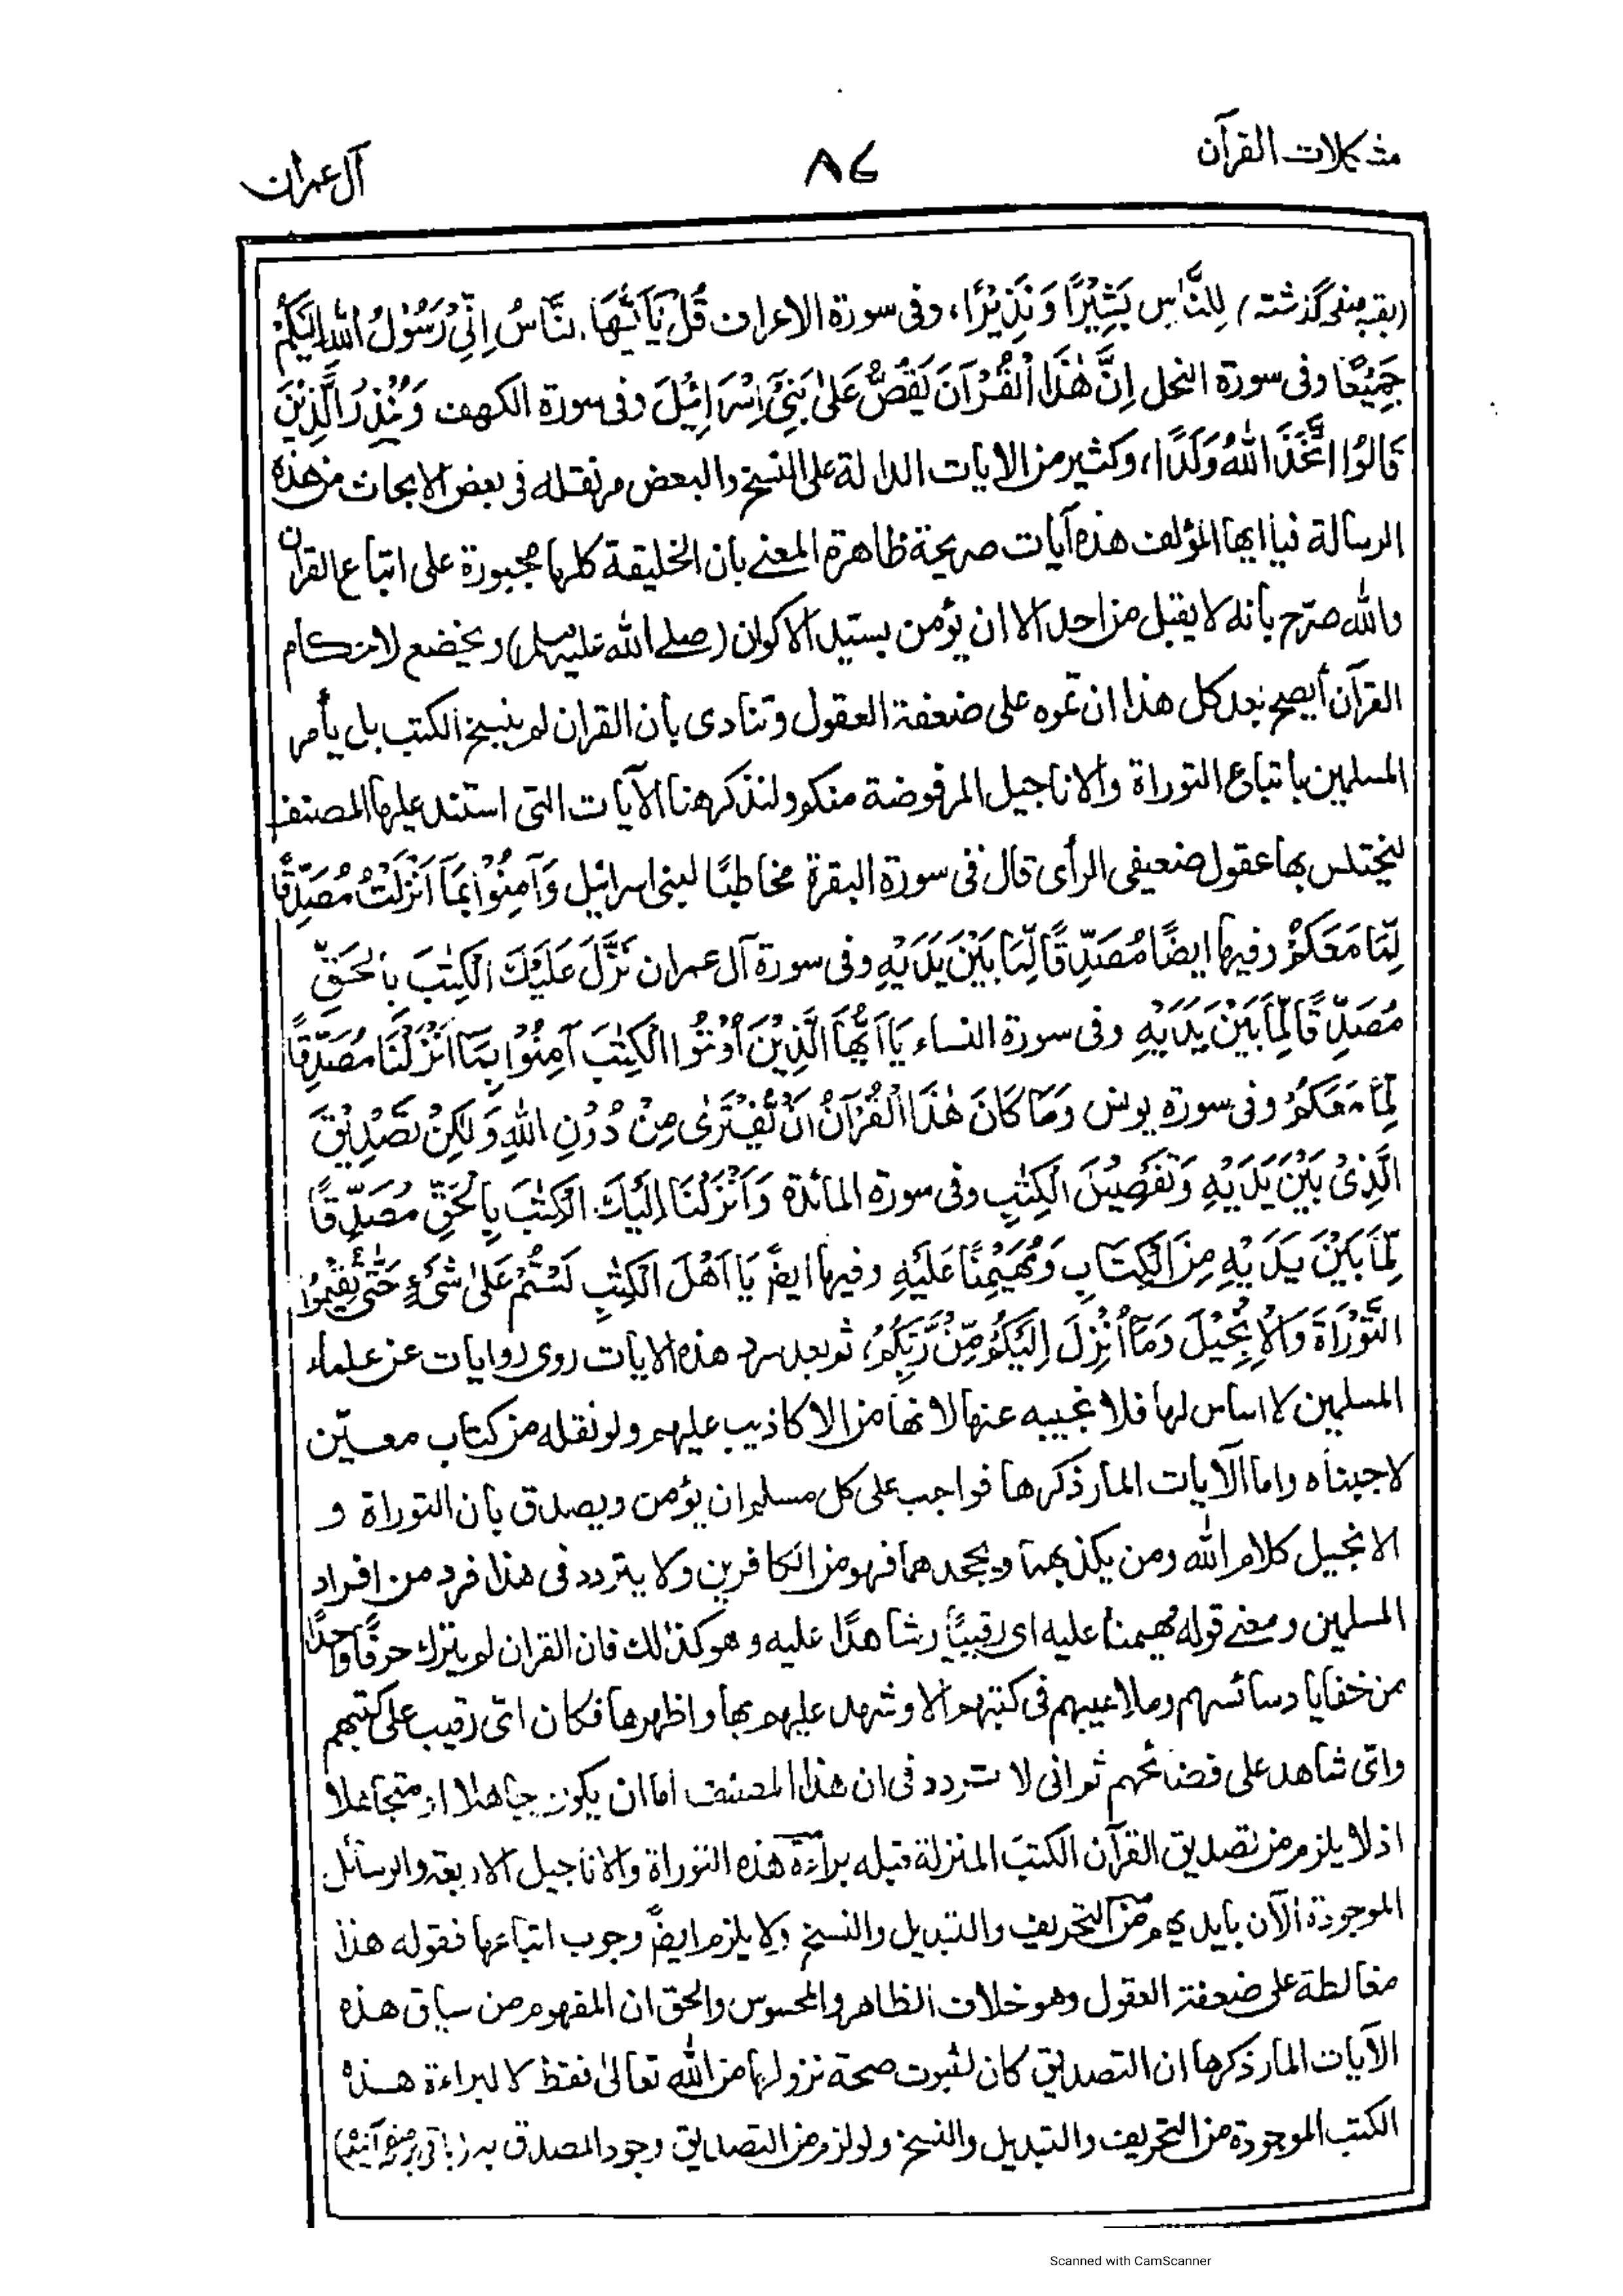 مشكلات القرآن
٨٤
آل عمران
(بقیہ صفحہ گذشتہ) لِلنَّاسِ بَشِيْرًا وَنَذِيْرًا، وفى سورة الاعراف قُلْ يَآ اَيُّهَا النَّاسُ اِنِّيْ رَسُوْلُ اللهِ اِلَيْكُمْ
جَمِيْعًا وفى سورة النحل اِنَّ هٰذَا الْقُرْآنَ يَقُصُّ عَلىٰ بَنِيْٓ اِسْرَائِيْلَ وفى سورة الكهف وَيُنْذِرَ الَّذِيْنَ
قَالُوْا اتَّخَذَ اللهُ وَلَدًا، وكثير من الايات الدالة على النسخ والبعض مر نقله فى بعض الابحاث من هذه
الرسالة فيا ايها المؤلف هذه آيات صريحة ظاهرة المعنے بان الخليقة كلها مجبورة على اتباع القران
والله صرّح بأنه لا يقبل من احد الا ان يؤمن بسيّد الاكوان (صلے الله عليه وسلم) ويخضع لاحكام
القرآن أيصح بعد كل هذا ان تموه على ضعفة العقول وتنادى بأن القران لم ينسخ الكتب بل يأمر
المسلمين باتباع التوراة والاناجيل المرفوضة منكم ولنذكر هنا الآيات التى استند عليها المصنف
ليختلس بها عقول ضعيفى الرأى قال فى سورة البقرة مخاطبًا لبنى اسرائيل وَآمِنُوْا بِمَآ اَنْزَلْتُ مُصَدِّقًا
لِّمَا مَعَكُمْ وفيها ايضًا مُصَدِّقًا لِّمَا بَيْنَ يَدَيْهِ وفى سورة آل عمران نَزَّلَ عَلَيْكَ الْكِتٰبَ بِالْحَقِّ
مُصَدِّقًا لِّمَا بَيْنَ يَدَيْهِ وفى سورة النساء يَا اَيُّهَا الَّذِيْنَ اُوْتُوا الْكِتٰبَ آمِنُوْا بِمَآ اَنْزَلْنَا مُصَدِّقًا
لِّمَا مَعَكُمْ وفى سورة يونس وَمَا كَانَ هٰذَا الْقُرْآنُ اَنْ يُّفْتَرٰى مِنْ دُوْنِ اللهِ وَلٰكِنْ تَصْدِيْقَ
الَّذِىْ بَيْنَ يَدَيْهِ وَتَفْصِيْلَ الْكِتٰبِ وفى سورة المائدة وَاَنْزَلْنَا اِلَيْكَ الْكِتٰبَ بِالْحَقِّ مُصَدِّقًا
لِّمَا بَيْنَ يَدَيْهِ مِنَ الْكِتَابِ وَمُهَيْمِنًا عَلَيْهِ وفيها ايضًا يَا اَهْلَ الْكِتٰبِ لَسْتُمْ عَلىٰ شَىْءٍ حَتّٰى تُقِيْمُوْا
التَّوْرَاةَ وَالْاِنْجِيْلَ وَمَآ اُنْزِلَ اِلَيْكُمْ مِّنْ رَّبِّكُمْ، ثم بعد سرد هذه الايات روى روايات عن علماء
المسلمين لا اساس لها فلا نجيبه عنها لانها من الاكاذيب عليهم ولو نقله من كتاب معيّن
لاجبناه واما الآيات المار ذكرها فواجب على كل مسلم ان يؤمن ويصدق بأن التوراة و
الانجيل كلام الله ومن يكذبهما ويجحدهما فهو من الكافرين ولا يتردد فى هذا فرد من افراد
المسلمين ومعنے قوله مهيمنا عليه اى رقيبًا وشاهدًا عليه وهو كذٰلك فان القران لم يترك حرفًا واحدًا
من خفايا دسائسهم وملاعيبهم فى كتبهم الا وشهد عليهم بها واظهرها فكان اىّ رقيب على كتبهم
واىّ شاهد على فضائحهم ثم انى لا تردد فى ان هذا المصنف اما ان يكون جاهلا او متجاهلا
اذ لا يلزم من تصديق القرآن الكتبَ المنزلة قبله براءة هذه التوراة والاناجيل الاربعة والرسائل
الموجودة الآن بايديهم من التحريف والتبديل والنسخ ولا يلزم ايضًا وجوب اتباعها فقوله هذا
مغالطة على ضعفة العقول وهو خلاف الظاهر والمحسوس والحق ان المفهوم من سياق هذه
الآيات المار ذكرها ان التصديق كان لثبوت صحة نزولها من الله تعالىٰ فقط لا لبراءة هذه
الكتب الموجودة من التحريف والتبديل والنسخ ولو لزم من التصديق وجود المصدق به (باقی بر صفحہ آئندہ)
Scanned with CamScanner